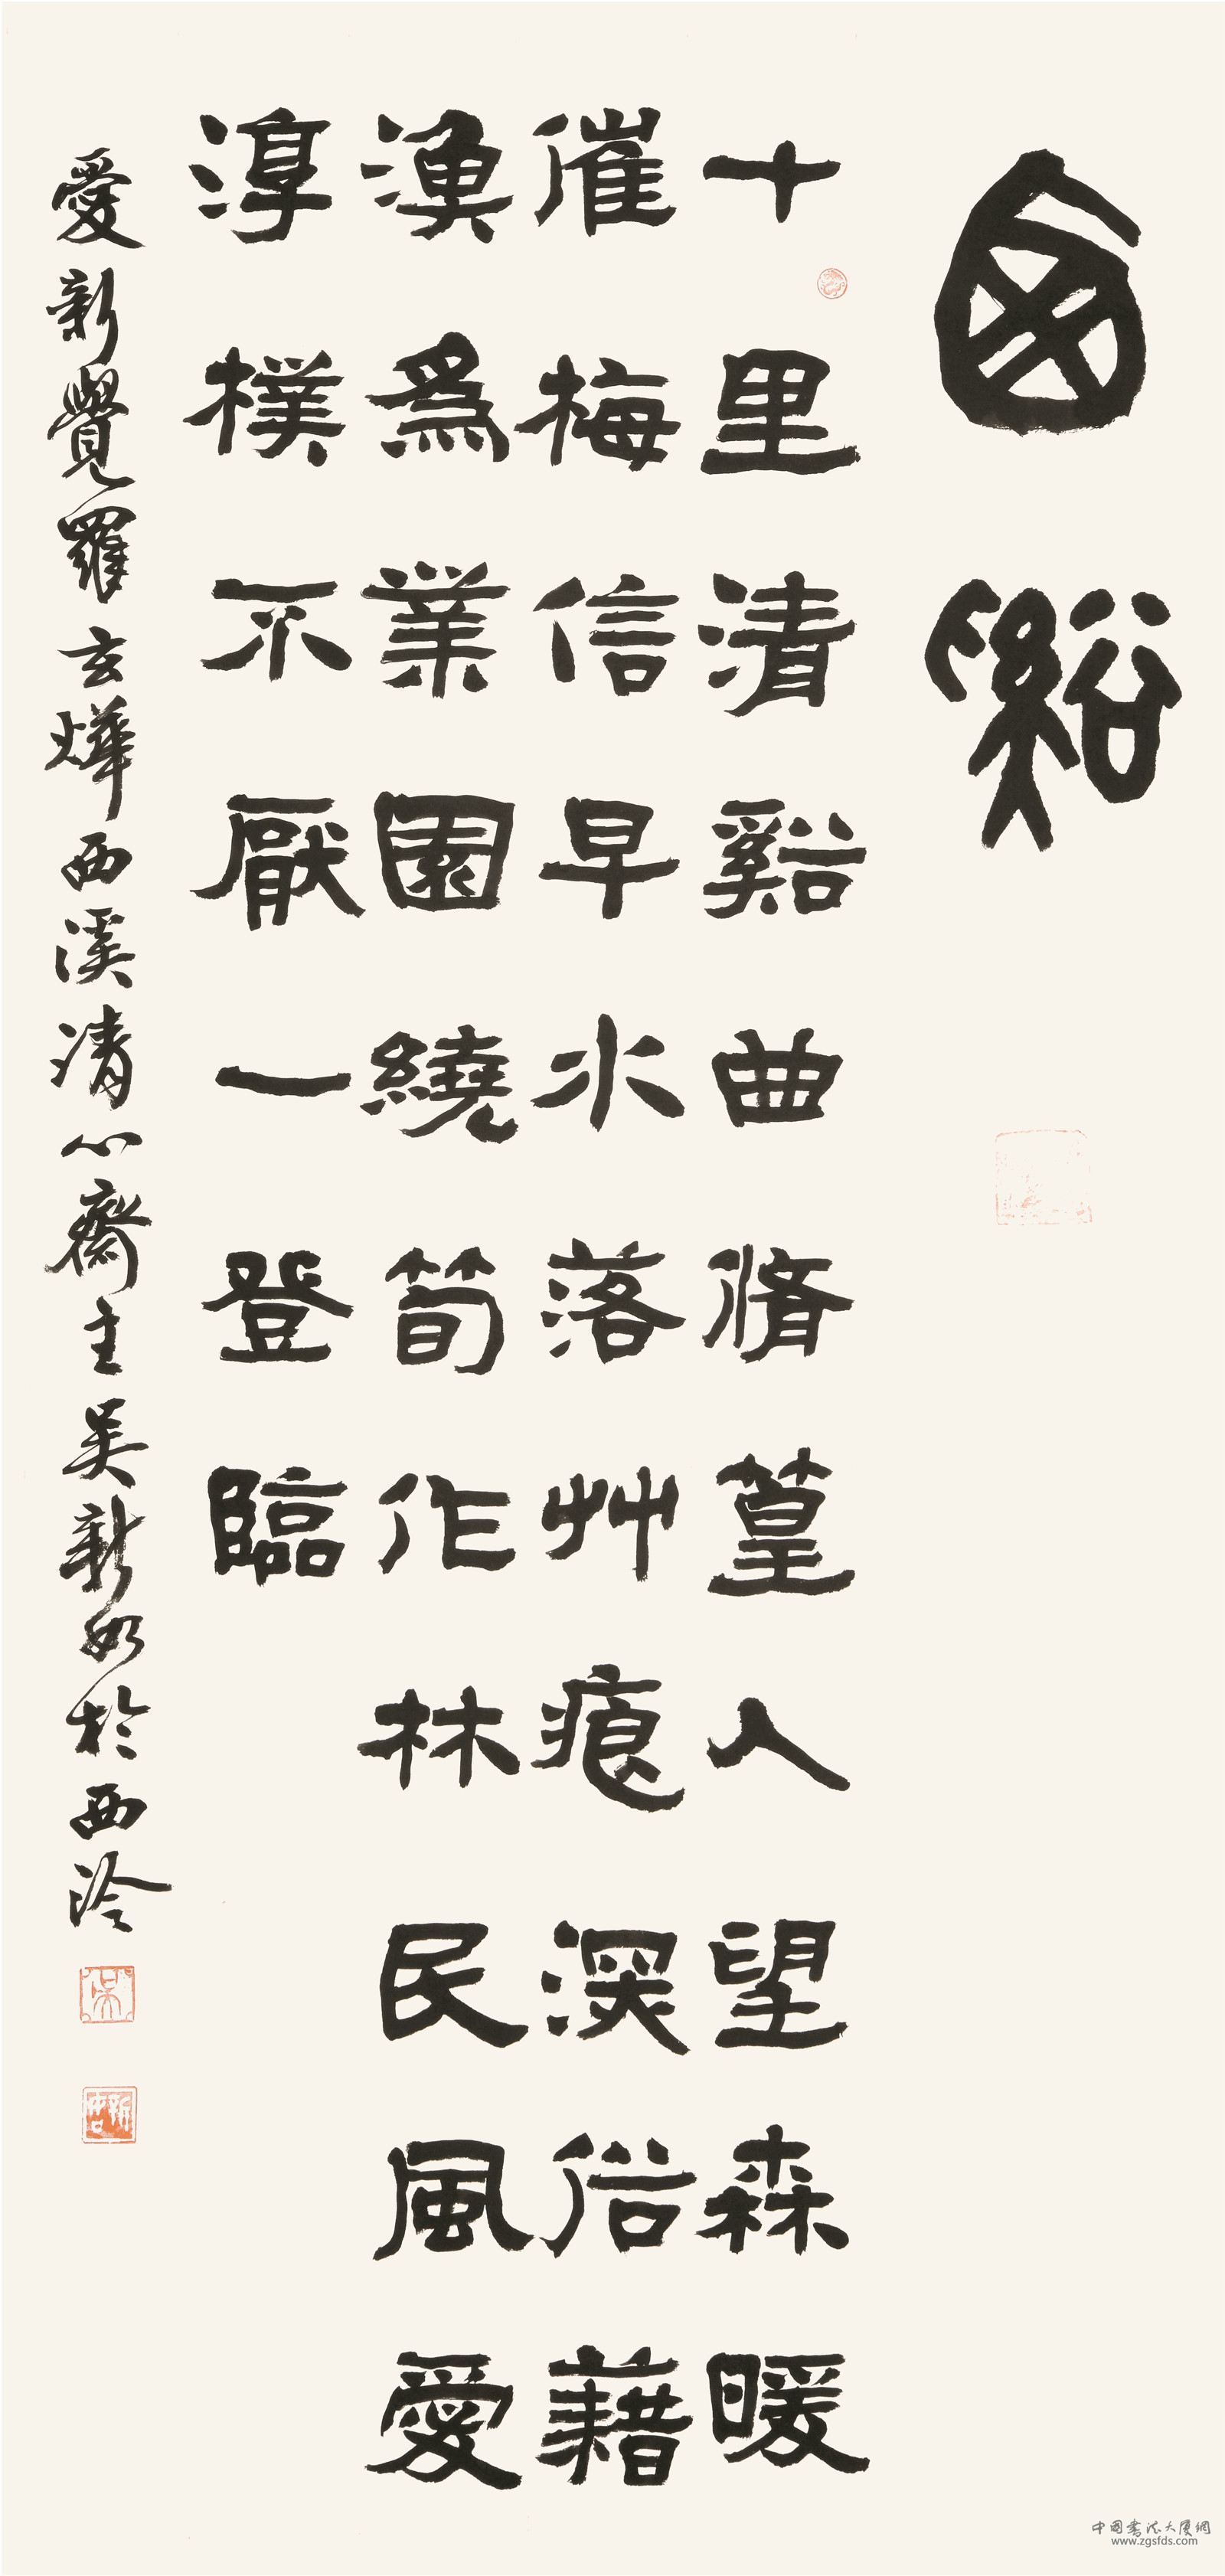 西谿
十里清谿曲脩篁入望森暖
催梅信早水落艸痕深俗藉
漁為業園繞筍作林民風愛
淳樸不厭一登臨
愛新覺羅玄燁西溪清心齋主吴新如於西泠
中国书法大厦網
www.zgsfds.com